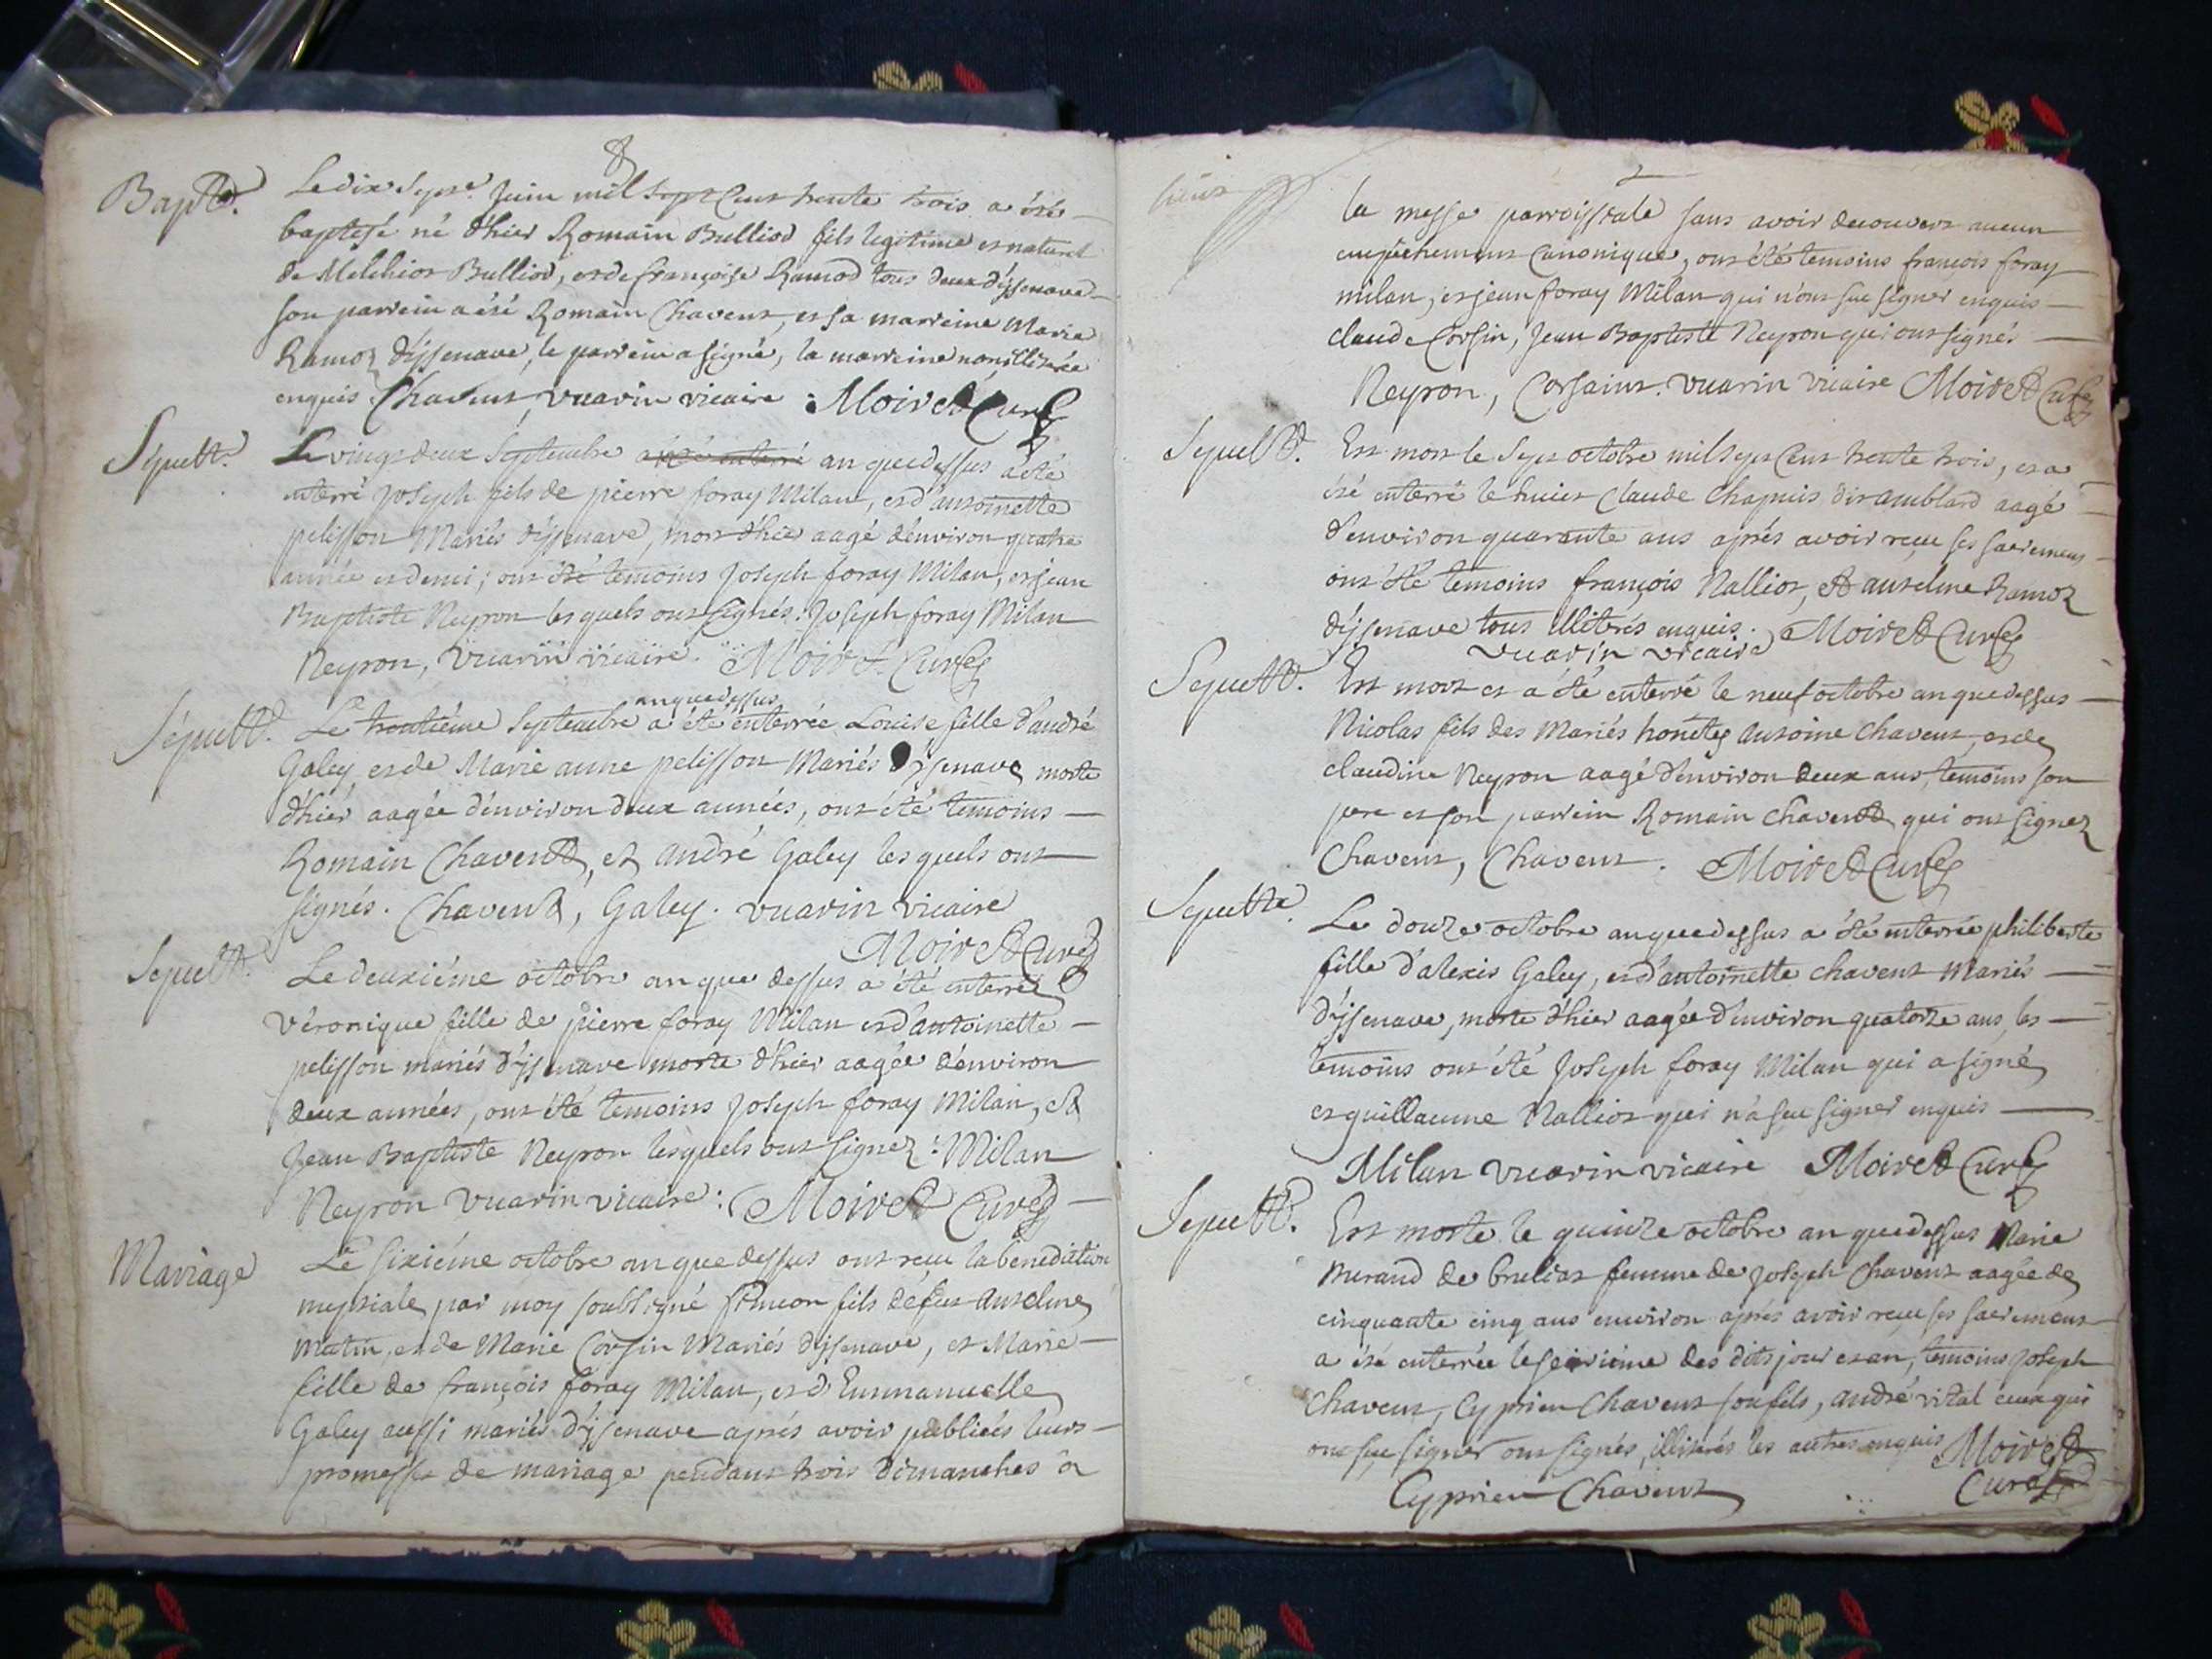 8
Bapt.
Le dix sept.e Juin mil sept cent trente trois a été
baptisé né d'hier Romain Bulliod fils legitime et naturel
de Melchior Bulliod, et de françoise Ramod tous deux d'yssenave
son parrein a été Romain Chavent, et sa marreine Marie
Ramoz d'yssenave, le parrein a signé, la marreine non illiterée
enquis. Chavent, vuarin vicaire. Moiret Curé
Sépult.
Le vingt deux Septembre a été enterré an que dessus a été
enterré Joseph fils de pierre foray Milan, et d'antoinette
pelisson Mariés d'yssenave, mort d'hier aagé d'environ quatre
année et demi; ont été temoins Joseph foray Milan, et jean
Baptiste Neyron lesquels ont signés. Joseph foray Milan
Neyron, vuarin vicaire. Moiret Curé
Sépult.
an que dessus
Le trentiéme Septembre a été enterrée Louise fille d'andré
Galey et de Marie anne pelisson Mariés d'yssenave morte
d'hier aagée d'environ deux années, ont été temoins
Romain Chavent, et andré Galey lesquels ont
signés. Chavent, Galey. vuarin vicaire
Moiret Curé
Sepult.
Le deuxiéme octobre an que dessus a été enterrée
véronique fille de pierre foray Milan et d'antoinette
pelisson mariés d'yssenave morte d'hier aagée d'environ
deux années, ont été temoins Joseph foray Milan, et
Jean Baptiste Neyron lesquels ont signez: Milan
Neyron vuarin vicaire: Moiret Curé
Mariage
Le sixiéme octobre an que dessus ont reçu la benediction
nuptiale par moy soubsigné simeon fils de feu anselme
matin, et de Marie Corsin Mariés d'yssenave, et Marie
fille de françois foray Milan, et d'Emmanuelle
Galey aussi mariés d'yssenave aprés avoir publiées leurs
promesses de mariage pendant trois dimanches à
la messe parroissiale sans avoir decouvert aucun
empêchement canonique, ont été temoins françois foray
milan, et jean foray Milan qui n'ont sçu signer enquis
claude Corsin, Jean Baptiste Neyron qui ont signés
Neyron, Corsaint. vuarin vicaire Moiret Curé
Sepult.
Est mort le sept octobre mil sept cent trente trois, et a
été enterré le huict Claude Chapuis dit amblard aagé
d'environ quarante ans aprés avoir reçu ses sacremens
ont été temoins françois Nallior, et anselme Ramoz
d'yssenave tous illiterés enquis. Moiret Curé
vuarin vicaire
Sepult.
Est mort et a été enterré le neuf octobre an que dessus
Nicolas fils des Mariés honêtes antoine Chavent, et de
claudine Neyron aagé d'environ deux ans, temoins son
pere et son parrein Romain chavent qui ont signez
Chavent, Chavent. Moiret Curé
Sepult.
Le douze octobre an que dessus a été enterrée philiberte
fille d'alexis Galey, et d'antoinette chavent mariés
d'yssenave, morte d'hier aagée d'environ quatorze ans, les
temoins ont été Joseph foray Milan qui a signé
et guillaume Nallior qui n'a sçu signer enquis
Milan vuarin vicaire Moiret Curé
Sepult.
Est morte le quinze octobre an que dessus Marie
Burand de brulias femme de Joseph Chavent aagée de
cinquante cinq ans environ aprés avoir reçu ses sacremens
a été enterrée le seiziéme des dits jour et an, temoins Joseph
Chavent, Cyprien Chavent son fils, andré vital ceux qui
ont sçu signer ont signés, illiterés les autres enquis Moiret
Cyprien Chavent Curé